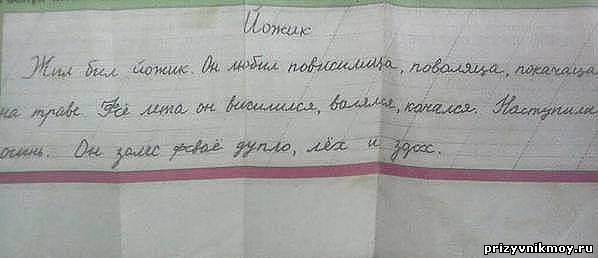 Йожик
Жил был йожик. Он любил повисилища, поволяца, покачаца
на траве. Всё лета он висилился, волялся, качался. Наступила
осинь. Он залес фсваё дупло, лёх и здох.
prizyvnikmoy.ru